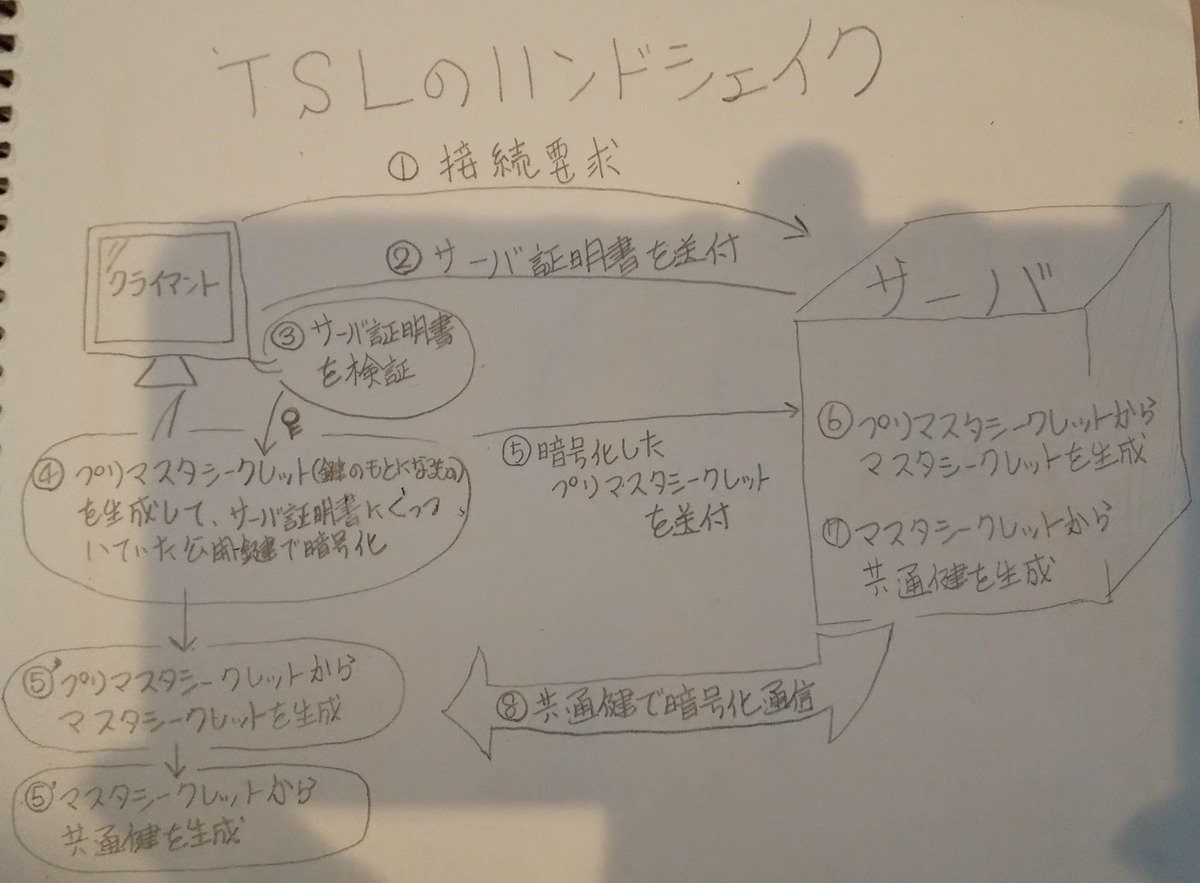 TSLのハンドシェイク
①接続要求
クライマント
②サーバ証明書を送付
サーバ
③サーバ証明書
を検証
④プリマスタシークレット(鍵のもとになるもの)
を生成して、サーバ証明書にくっつ
いていた公開鍵で暗号化
⑤暗号化した
プリマスタシークレット
を送付
⑥プリマスタシークレットから
マスタシークレットを生成
⑦マスタシークレットから
共通健を生成
⑤'プリマスタシークレットから
マスタシークレットを生成
⑧共通健で暗号化通信
⑤'マスタシークレットから
共通健を生成